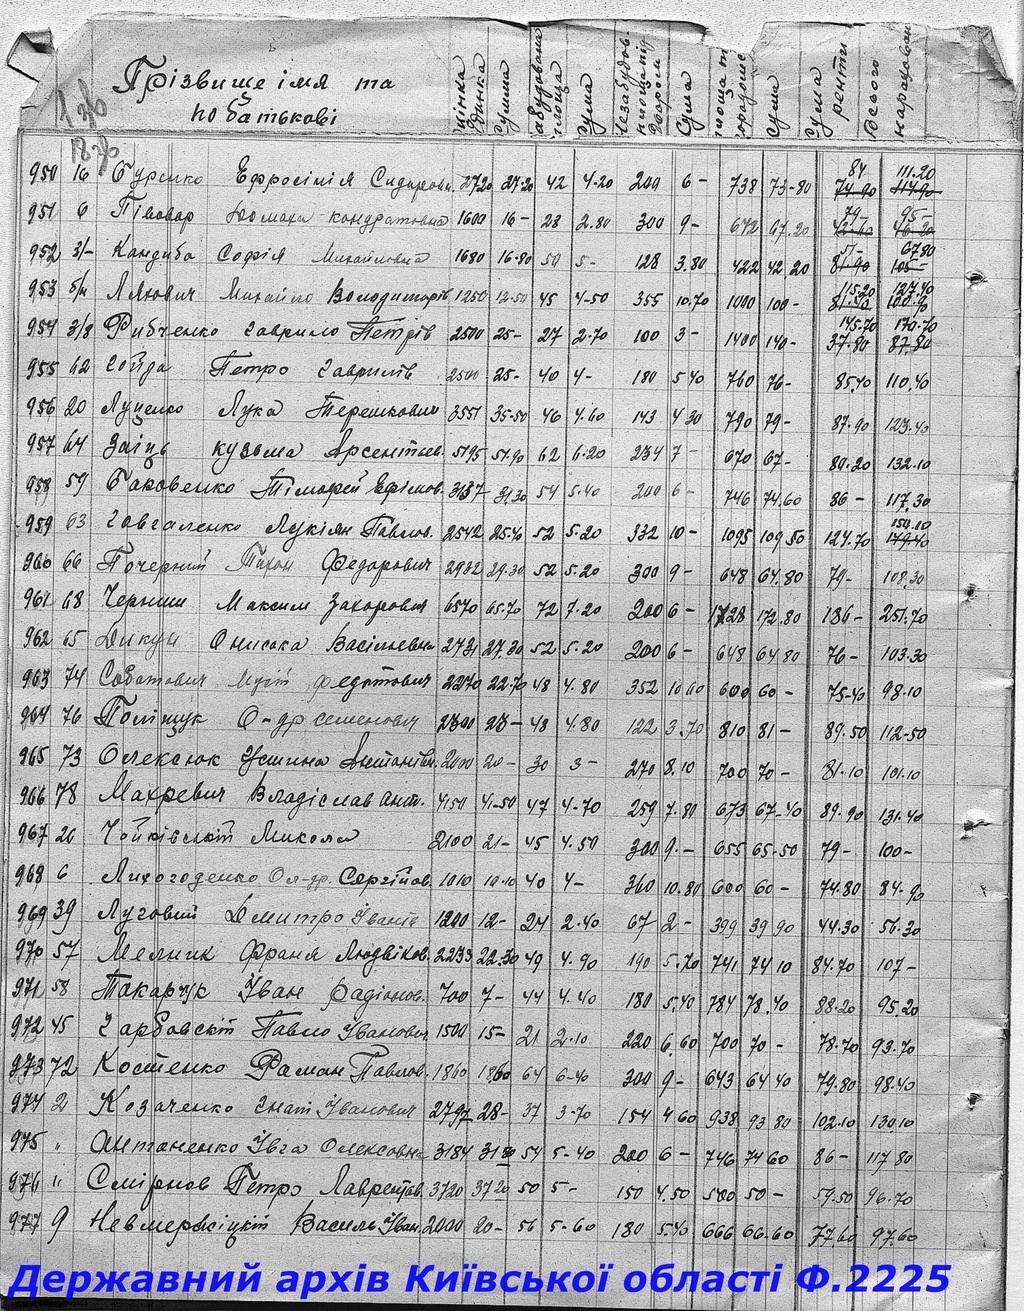 Прізвище імя та
по батькові
цинка
сума
сума
сума
сума
сума
ренти
всього
950 16 Єфросінія 2720 27.20 42 4.20 200 6- 738 73-80 84 74-90 111.20
951 6 Півовар кондратовна 1600 16- 28 2.80 300 9- 672 67.20 79- 95-
952 Кандиба Софія Михайловна 1680 16-80 50 5- 128 3.80 422 42.20 51- 67.80 105-
953 б/н Михайло Володимирів 1250 12-50 45 4-50 355 10.70 1000 100- 115.20 127.40
954 Рибченко Гаврило Петрів 2500 25- 27 2-70 100 3- 1400 140- 145.70 170.70 37.80 87.80
955 62 Петро Гаврилів 2500 25- 40 4- 180 5.40 760 76- 85.40 110.40
956 20 Луценко Лука Терешкович 3551 35-50 46 4.60 143 4.30 790 79- 87.90 123.40
957 64 Заїць кузьма Арсентьев. 5195 51.90 62 6.20 234 7- 670 67- 80.20 132.10
958 59 Тімофей Єфімов. 54 5.40 200 6- 746 74.60 86- 117.30
959 63 Лукіян Павлов. 2542 25.40 52 5.20 332 10- 1095 109.50 124.70 150.10
960 66 Почерний Тихон Федорович 2932 29.30 52 5.20 300 9- 648 64.80 79- 108.30
961 68 Черниш Максим Захорович 6570 65.70 72 7.20 200 6- 1728 172.80 186- 251.70
962 65 Дикун Онисока Васільевна 2731 27.30 52 5.20 200 6- 648 64.80 76- 103.30
963 74 Федотович 2270 22.70 48 4.80 352 10.60 600 60- 75.40 98.10
964 76 Поліщук О-др семенович 2300 23- 48 4.80 122 3.70 810 81- 89.50 112-50
965 73 Олексюк Устина Антонівн. 2000 20- 30 3- 270 8.10 700 70- 81.10 101.10
966 78 Махревич Владіслав Ант. 4150 41-50 47 4-70 259 7.80 673 67-40 89.90 131.40
967 26 Чайківскій Микола 2100 21- 45 4.50 300 9- 655 65.50 79- 100-
968 6 Лихогоденко Ол-др. Сергійов. 1010 10.10 40 4- 360 10.80 600 60- 74.80 84.90
969 39 Луговий Дмитро Іванів 1200 12- 24 2.40 67 2- 399 39.90 44.30 56.30
970 57 Мельник Франя Людвіков. 2233 22.30 49 4.90 190 5.70 741 74.10 84.70 107-
971 58 Такарчук Іван Радіонов. 700 7- 44 4.40 180 5.40 784 78.40 88.20 95.20
972 45 Гарбовскій Павло Іванович 1500 15- 21 2.10 220 6.60 700 70- 78.70 93.70
973 72 Костенко Раман Павлов. 1860 18.60 64 6-40 300 9- 643 64.40 79.80 98.40
974 2 Козаченко Гнат Іванович 2797 28- 37 3-70 154 4.60 938 93.80 102.10 130.10
975 " Антаненко Івга Олексовна 3184 54 5-40 200 6- 746 74.60 86- 117.80
976 " Смірнов Петро Лаврентьев. 3720 37.20 50 5- 150 4.50 500 50- 59.50 96.70
977 9 Невмержіцкій Василь Іван. 2000 20- 56 5-60 180 5.40 666 66.60 77.60 97.60
Державний архів Київської області Ф.2225